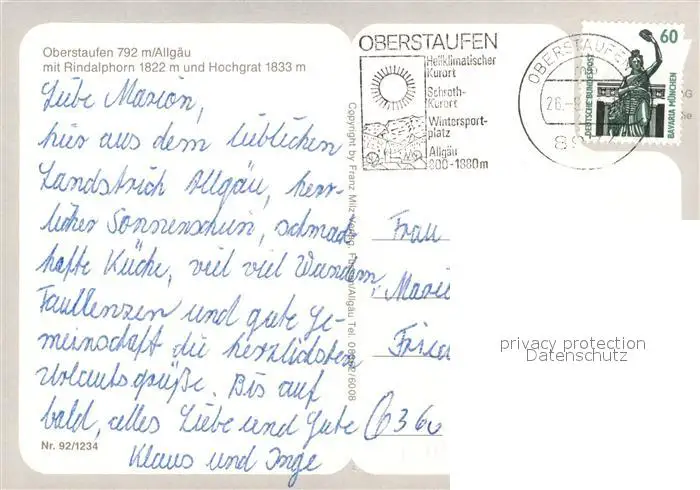 Oberstaufen 792 m/Allgäu
mit Rindalphorn 1822 m und Hochgrat 1833 m
Liebe Marion,
hier aus dem lieblichen
Landstrich Allgäu, herr-
licher Sonnenschein, schmack
hafte Küche, viel viel Wandern,
Faullenzen und gute Ge-
meinschaft die herzlichsten
Urlaubsgrüße. Bis auf
bald, alles Liebe und Gute
Klaus und Inge
Nr. 92/1234
Copyright by Franz Milz Verlag
OBERSTAUFEN
Heilklimatischer
Kurort
Schroth-
Kurort
Wintersport-
platz
Allgäu
800-1880m
OBERSTAUFEN
26.-
60
DEUTSCHE BUNDESPOST
BAVARIA MÜNCHEN
Frau
6360
privacy protection
Datenschutz